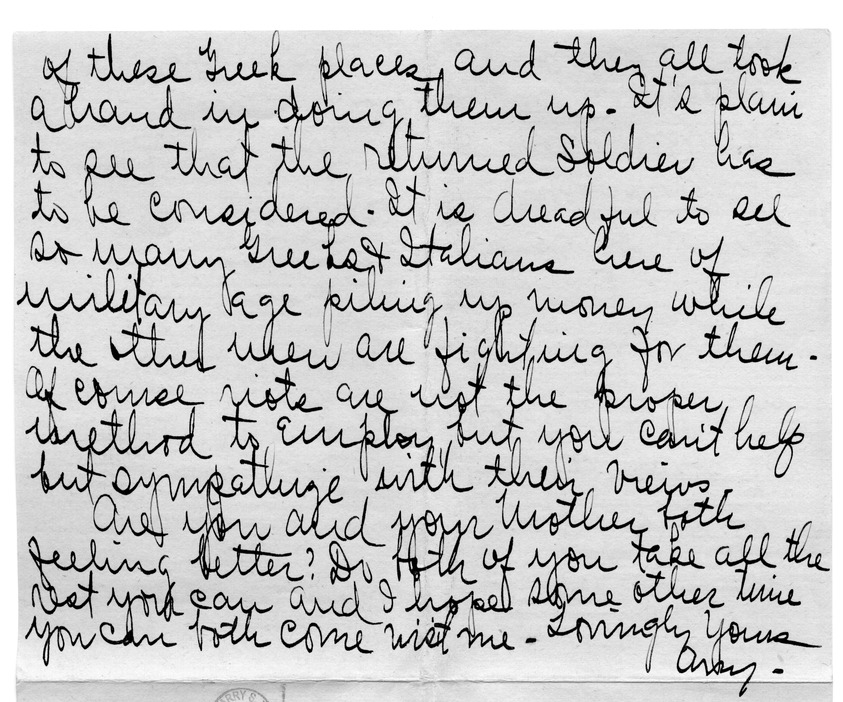 of these Greek places, and they all took
a hand in doing them up. It's plain
to see that the returned Soldier has
to be considered. It is dreadful to see
so many Greeks & Italians here of
military age piling up money while
the other men are fighting for them.
Of course riots are not the proper
method to employ, but you can't help
but sympathize with their views.
Are you and your Mother both
feeling better? Do both of you take all the
rest you can and I hope some other time
you can both come visit me - Lovingly Yours
ARRY S